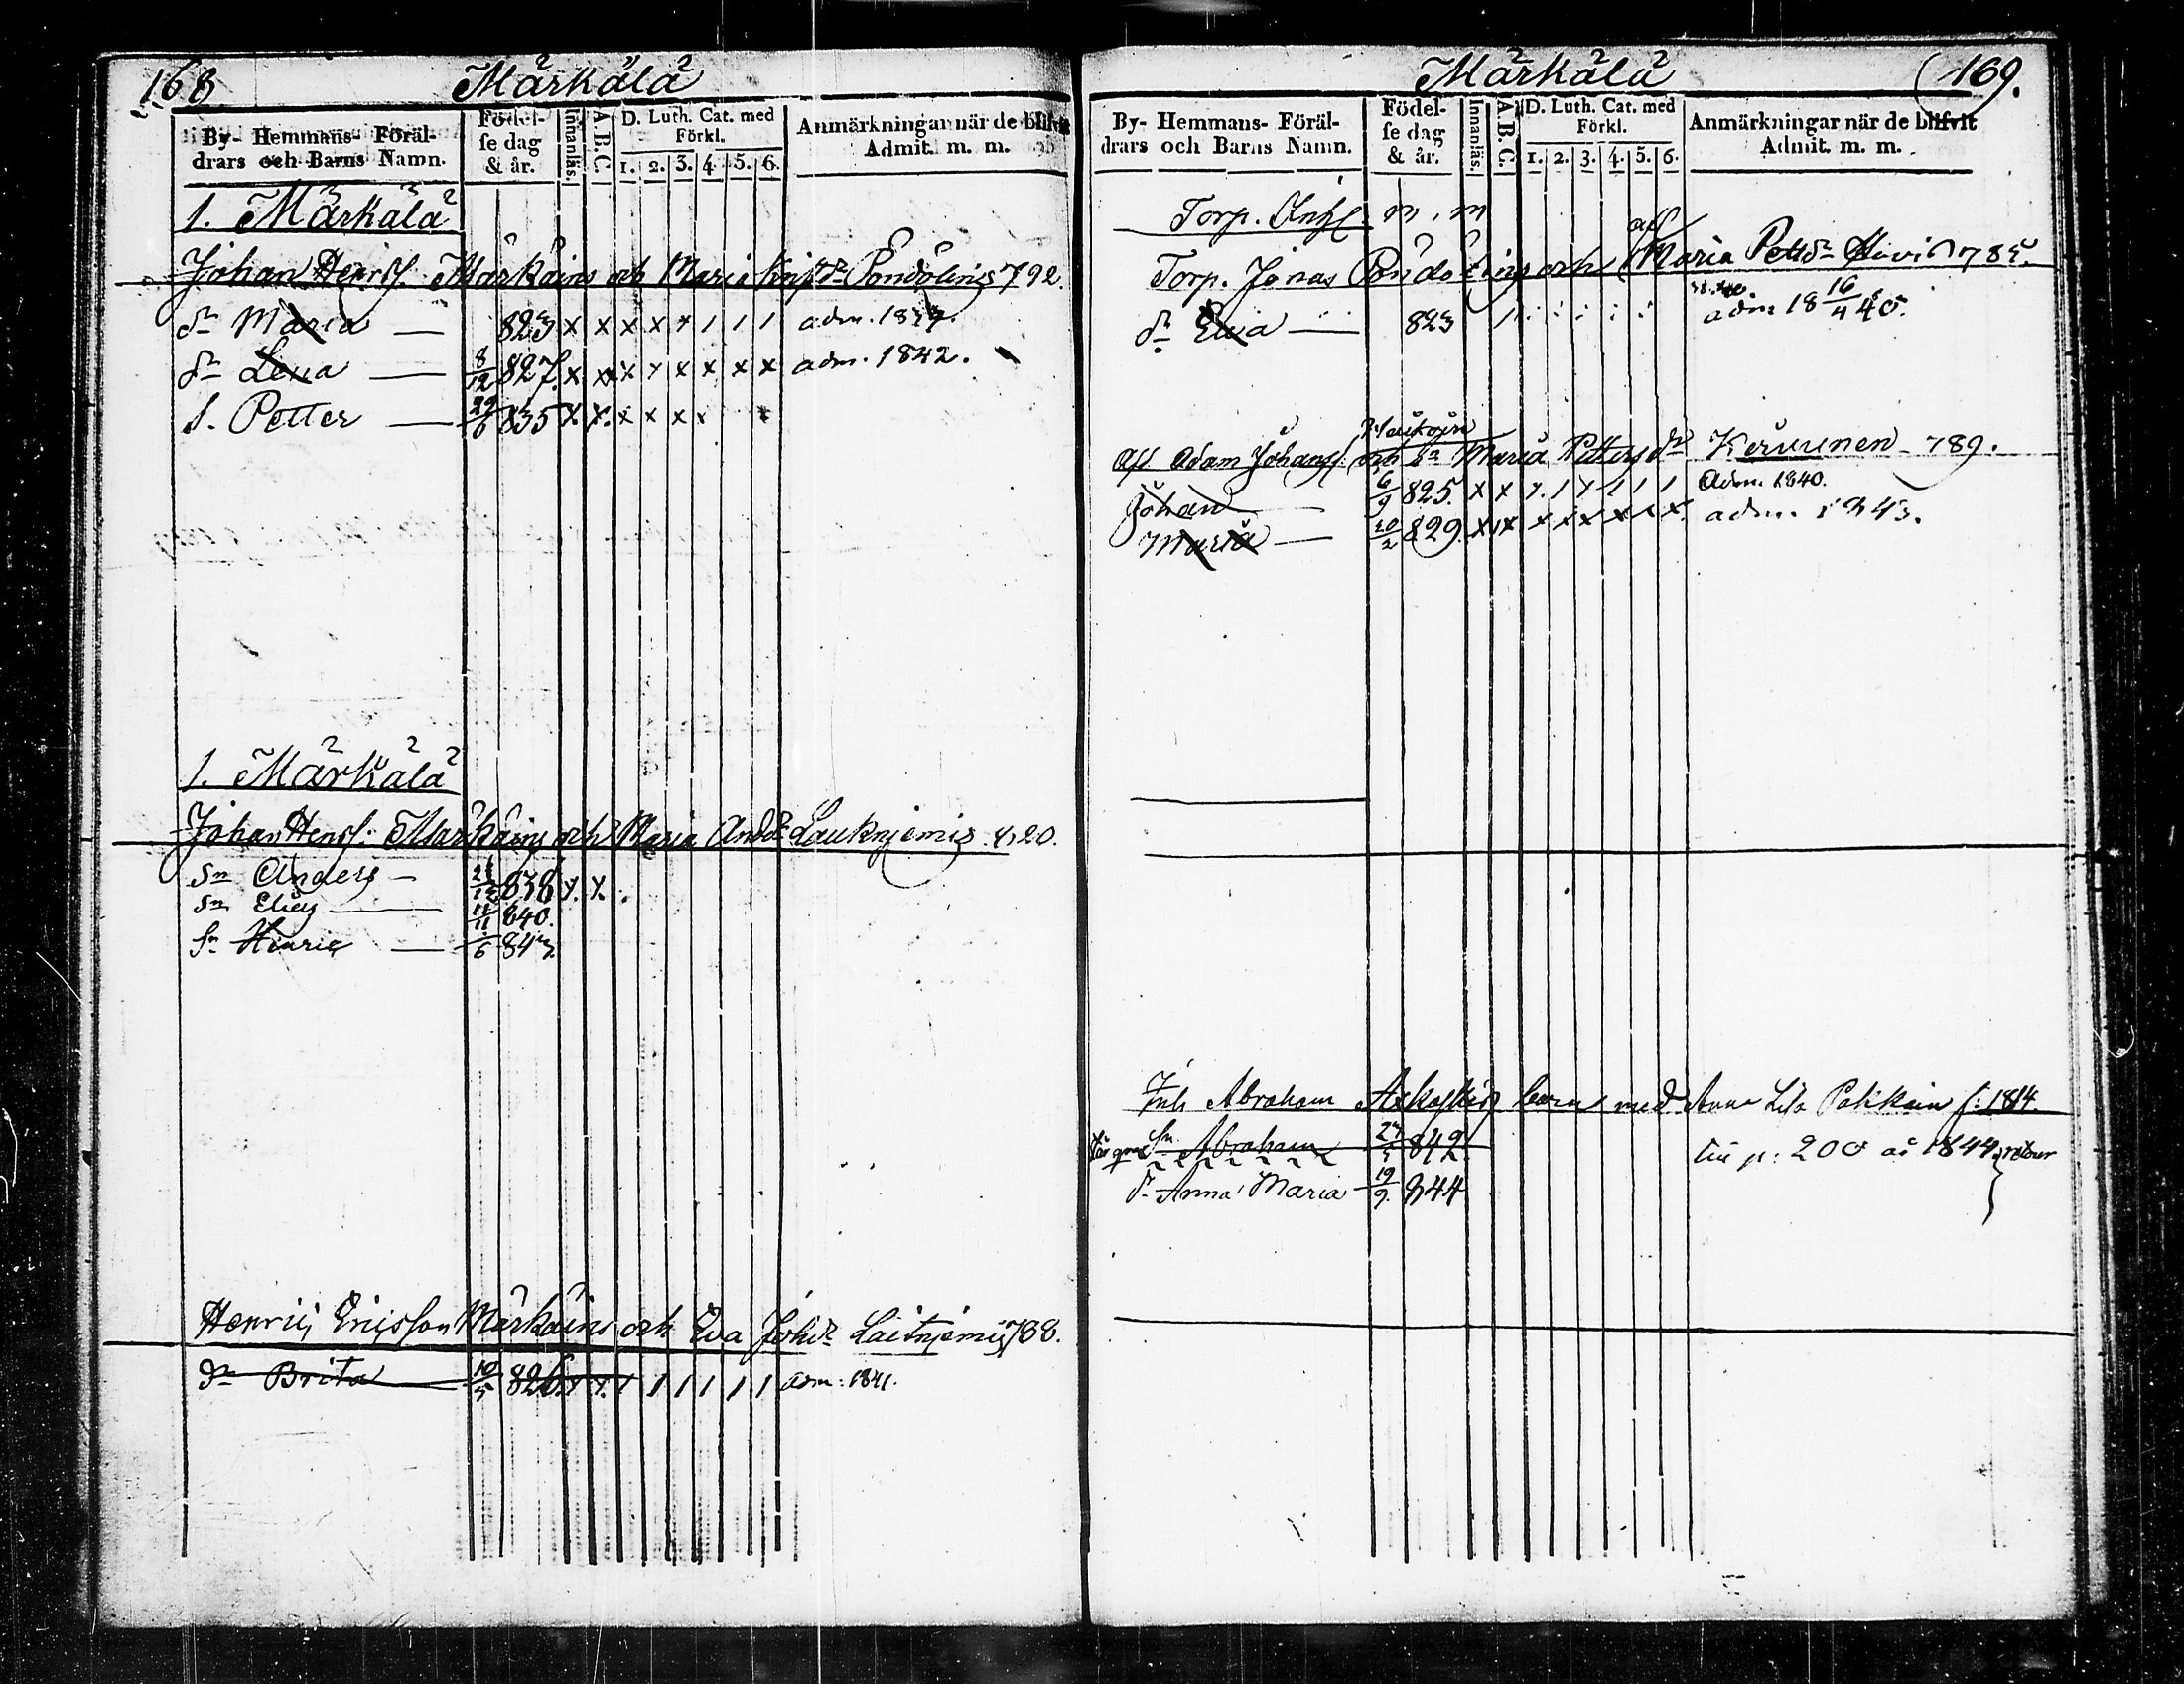 168 Märkälä
By- Hemmans- Föräl-
drars och Barns Namn.
Födel-
se dag
& år.
Innanläs.
A.B.C.
D. Luth. Cat. med
Förkl.
1. 2. 3. 4. 5. 6.
Anmärkningar när de blifvit
Admit. m. m.
1. Märkälä
Johan Henrss. Märkäins och Maria Pöndölins 792.
dr Maria — 823 x x x x x 1 1 1 adm.
dr Lena — 8/12 827. x xx x x x x x x adm. 1842.
S. Petter — 29/6 835 x. x. x x x x x
1. Märkälä
Johan Henrss: Märkäins och Maria Andr Lauknjemis 820.
Sn Anders — 838 x. x.
Sn Elias — 11/11 840.
Sn Henric — 6 843.
Henric Ericsson Märkäins och Eva Johdr Laitnjemis 788.
dr Brita — 10/5 826. x x. 1 1 1 1 1 1 adm: 1841.
Märkälä (169.
By- Hemmans- Föräl-
drars och Barns Namn.
Födel-
se dag
& år.
Innanläs.
A.B.C.
D. Luth. Cat. med
Förkl.
1. 2. 3. 4. 5. 6.
Anmärkningar när de blifvit
Admit. m. m.
Torp. Inhs. m. m
afl
Torp. Jonas Pöndölins och Maria Pettdr Hovi
dr Ewa — 823 adm 18 16/4 40.
Afl Adam Johanss. och Maria Pettersdr Kervinen 789.
Johan — 6/9 825. x x x. 1 x 1 1 1 Adm. 1840.
Maria — 20/2 829. x x x x x x x x. adm. 1843.
Inh Abraham barn med Anna Lisa Pakkain f: 1814.
Sn Abraham 842. p: 200 år 1844. retour
dr Anna Maria 19/9. 844